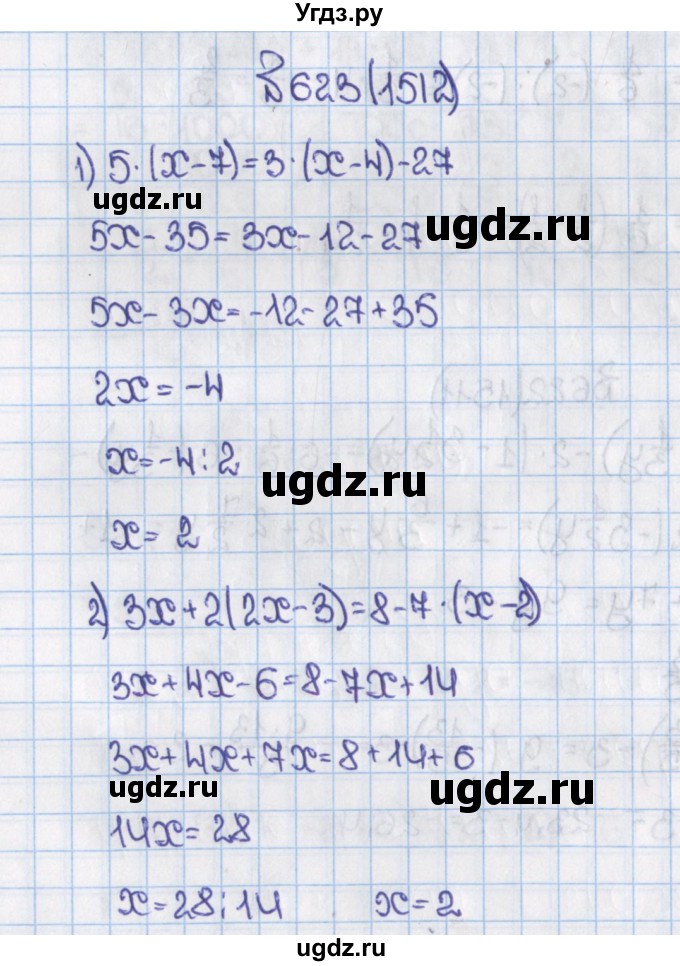 Угдз.ру
№623(1512)
1) 5·(x-7)=3·(x-4)-27
ugdz.ru
5x-35=3x-12-27
ugdz.ru
5x-3x=-12-27+35
2x=-4
x=-4:2
ugdz.ru
x=2
2) 3x+2(2x-3)=8-7·(x-2)
3x+4x-6=8-7x+14
3x+4x+7x=8+14+6
ugdz.ru
ugdz.ru
14x=28
x=28:14 x=2
ugdz.ru